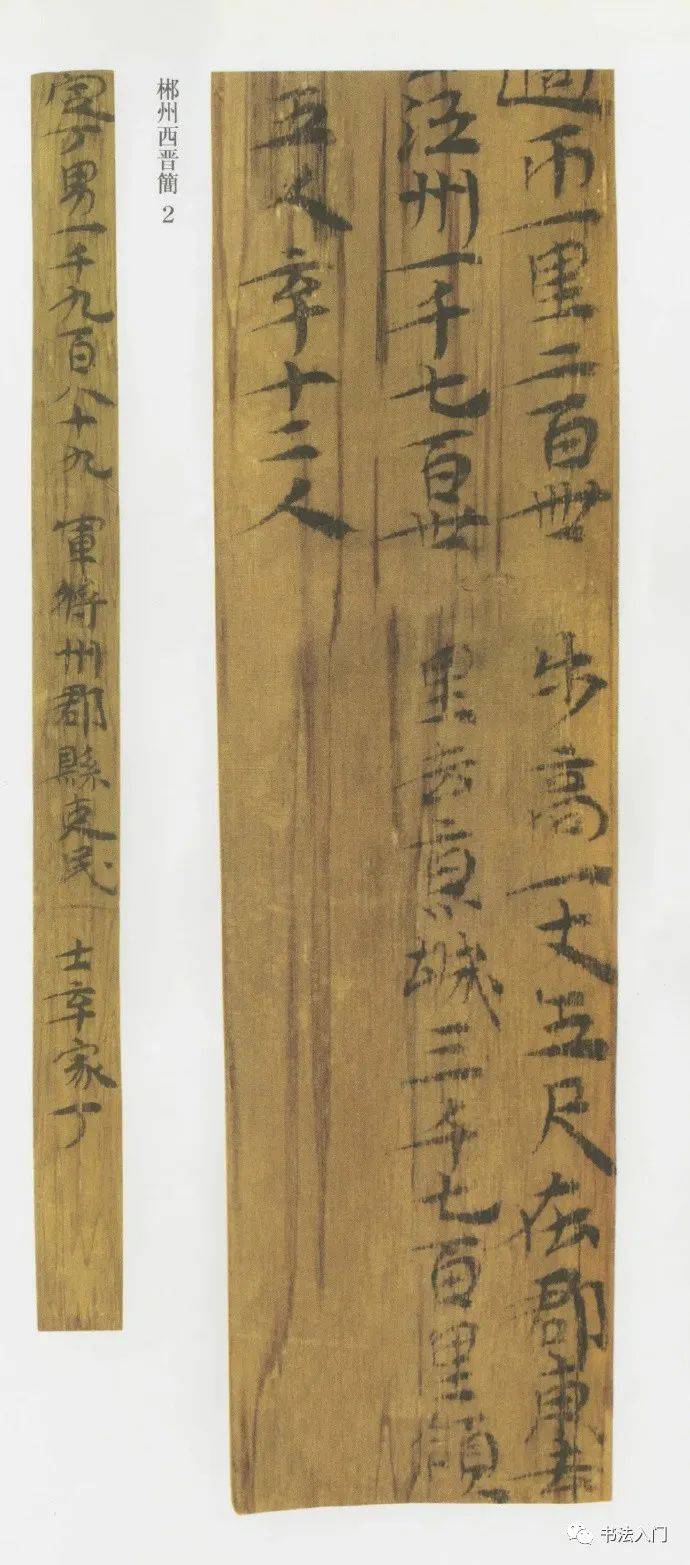 週帀一里二百卌步高一丈五尺在郡東去
江州一千七百卅里去京城三千七百里領
五人卒十二人
郴州西晋簡 2
定丁男一千九百八十九 軍將州郡縣吏民 士卒家丁
书法入门